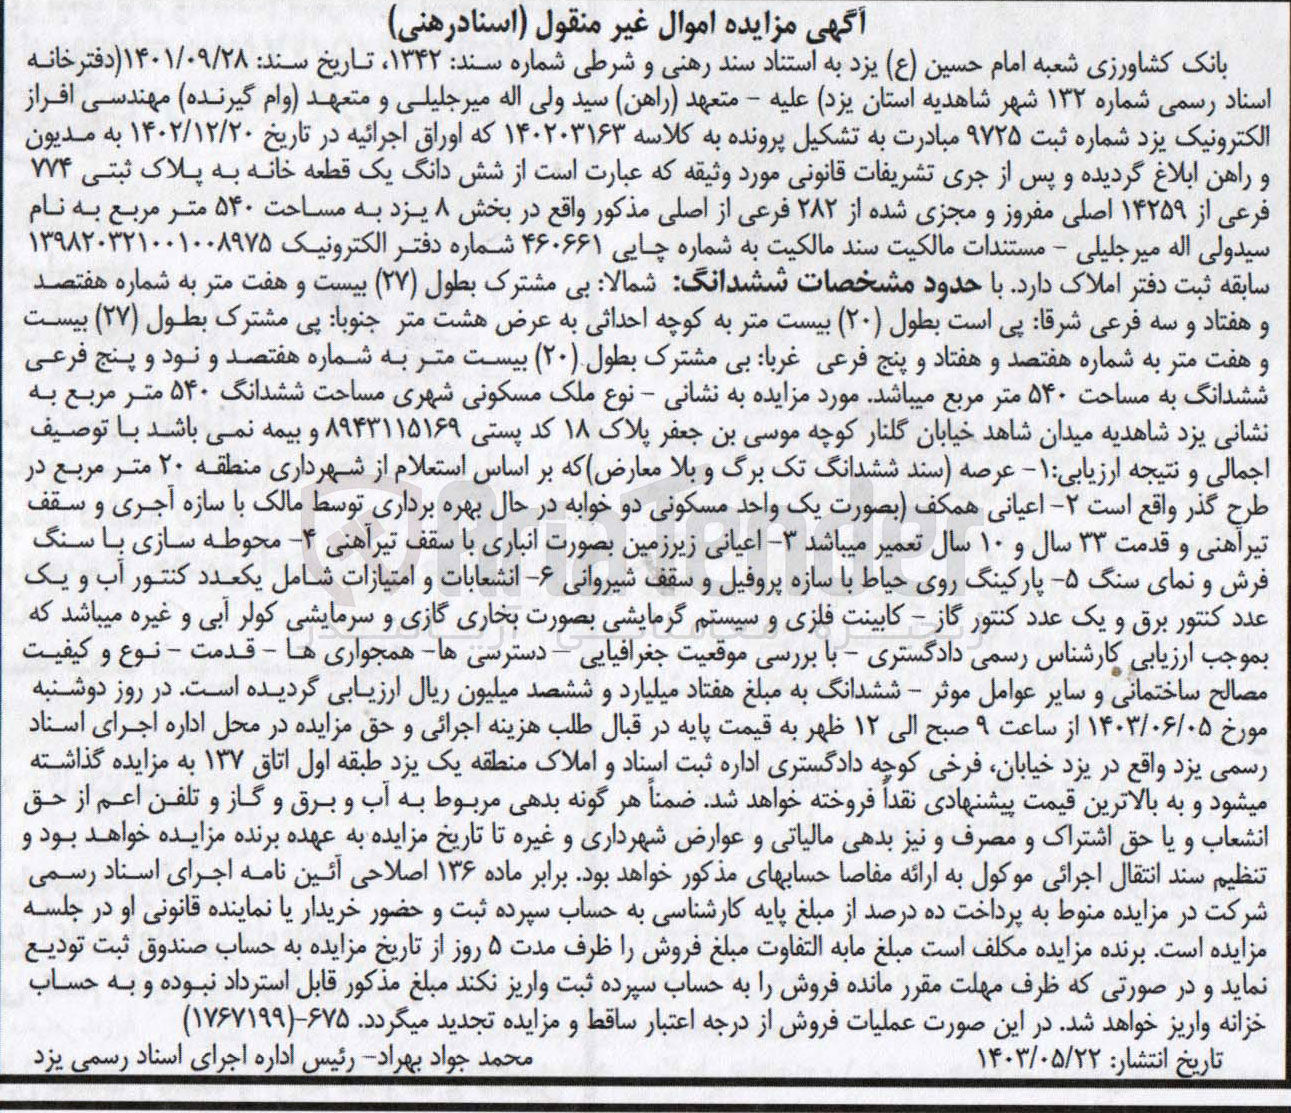 آگهی مزایده اموال غیر منقول (اسنادرهنی)
بانک کشاورزی شعبه امام حسین (ع) یزد به استناد سند رهنی و شرطی شماره سند: ۱۳۴۲، تاریخ سند: ۱۴۰۱/۰۹/۲۸(دفترخانه
اسناد رسمی شماره ۱۳۲ شهر شاهدیه استان یزد) علیه - متعهد (راهن) سید ولی اله میرجلیلی و متعهد (وام گیرنده) مهندسی افراز
الکترونیک یزد شماره ثبت ۹۷۲۵ مبادرت به تشکیل پرونده به کلاسه ۱۴۰۲۰۳۱۶۳ که اوراق اجرائیه در تاریخ ۱۴۰۲/۱۲/۲۰ به مدیون
و راهن ابلاغ گردیده و پس از جری تشریفات قانونی مورد وثیقه که عبارت است از شش دانگ یک قطعه خانه به پلاک ثبتی ۷۷۴
فرعی از ۱۴۲۵۹ اصلی مفروز و مجزی شده از ۲۸۲ فرعی از اصلی مذکور واقع در بخش ۸ یزد به مساحت ۵۴۰ متر مربع به نام
سیدولی اله میرجلیلی - مستندات مالکیت سند مالکیت به شماره چاپی ۴۶۰۶۶۱ شماره دفتر الکترونیک ۱۳۹۸۲۰۳۲۱۰۰۱۰۰۸۹۷۵
سابقه ثبت دفتر املاک دارد. با حدود مشخصات ششدانگ: شمالا: بی مشترک بطول (۲۷) بیست و هفت متر به شماره هفتصد
و هفتاد و سه فرعی شرقا: پی است بطول (۲۰) بیست متر به کوچه احداثی به عرض هشت متر جنوبا: پی مشترک بطول (۲۷) بیست
و هفت متر به شماره هفتصد و هفتاد و پنج فرعی غربا: بی مشترک بطول (۲۰) بیست متر به شماره هفتصد و نود و پنج فرعی
ششدانگ به مساحت ۵۴۰ متر مربع میباشد. مورد مزایده به نشانی - نوع ملک مسکونی شهری مساحت ششدانگ ۵۴۰ متر مربع به
نشانی یزد شاهدیه میدان شاهد خیابان گلنار کوچه موسی بن جعفر پلاک ۱۸ کد پستی ۸۹۴۳۱۱۵۱۶۹ و بیمه نمی باشد با توصیف
اجمالی و نتیجه ارزیابی:۱- عرصه (سند ششدانگ تک برگ و بلا معارض)که بر اساس استعلام از شهرداری منطقه ۲۰ متر مربع در
طرح گذر واقع است ۲- اعیانی همکف (بصورت یک واحد مسکونی دو خوابه در حال بهره برداری توسط مالک با سازه آجری و سقف
تیرآهنی و قدمت ۳۳ سال و ۱۰ سال تعمیر میباشد ۳- اعیانی زیرزمین بصورت انباری با سقف تیرآهنی ۴- محوطه سازی با سنگ
فرش و نمای سنگ ۵- پارکینگ روی حیاط با سازه پروفیل و سقف شیروانی ۶- انشعابات و امتیازات شامل یکعدد کنتور آب و یک
عدد کنتور برق و یک عدد کنتور گاز - کابینت فلزی و سیستم گرمایشی بصورت بخاری گازی و سرمایشی کولر آبی و غیره میباشد که
بموجب ارزیابی کارشناس رسمی دادگستری - با بررسی موقعیت جغرافیایی - دسترسی ها- همجواری ها - قدمت - نوع و کیفیت
مصالح ساختمانی و سایر عوامل موثر - ششدانگ به مبلغ هفتاد میلیارد و ششصد میلیون ریال ارزیابی گردیده است. در روز دوشنبه
مورخ ۱۴۰۳/۰۶/۰۵ از ساعت ۹ صبح الی ۱۲ ظهر به قیمت پایه در قبال طلب هزینه اجرائی و حق مزایده در محل اداره اجرای اسناد
رسمی یزد واقع در یزد خیابان، فرخی کوچه دادگستری اداره ثبت اسناد و املاک منطقه یک یزد طبقه اول اتاق ۱۳۷ به مزایده گذاشته
میشود و به بالاترین قیمت پیشنهادی نقداً فروخته خواهد شد. ضمناً هر گونه بدهی مربوط به آب و برق و گاز و تلفن اعم از حق
انشعاب و یا حق اشتراک و مصرف و نیز بدهی مالیاتی و عوارض شهرداری و غیره تا تاریخ مزایده به عهده برنده مزایده خواهد بود و
تنظیم سند انتقال اجرائی موکول به ارائه مفاصا حسابهای مذکور خواهد بود. برابر ماده ۱۳۶ اصلاحی آئین نامه اجرای اسناد رسمی
شرکت در مزایده منوط به پرداخت ده درصد از مبلغ پایه کارشناسی به حساب سپرده ثبت و حضور خریدار یا نماینده قانونی او در جلسه
مزایده است. برنده مزایده مکلف است مبلغ مابه التفاوت مبلغ فروش را ظرف مدت ۵ روز از تاریخ مزایده به حساب صندوق ثبت تودیع
نماید و در صورتی که ظرف مهلت مقرر مانده فروش را به حساب سپرده ثبت واریز نکند مبلغ مذکور قابل استرداد نبوده و به حساب
خزانه واریز خواهد شد. در این صورت عملیات فروش از درجه اعتبار ساقط و مزایده تجدید میگردد. ۶۷۵-(۱۷۶۷۱۹۹)
تاریخ انتشار: ۱۴۰۳/۰۵/۲۲ محمد جواد بهراد- رئیس اداره اجرای اسناد رسمی یزد
AriaTender